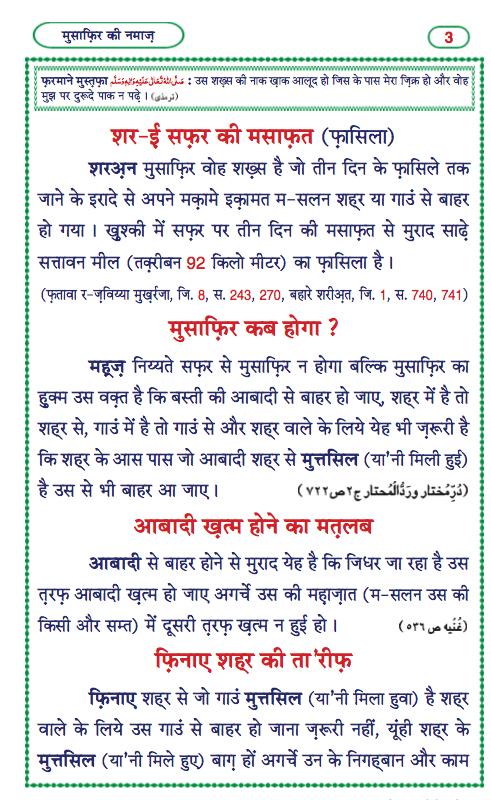 मुसाफ़िर की नमाज़
3
फ़रमाने मुस्त़फ़ा صَلَّى اللهُ تَعَالٰى عَلَيْهِ وَاٰلِهٖ وَسَلَّم : उस शख़्स की नाक ख़ाक आलूद हो जिस के पास मेरा ज़िक्र हो और वोह
मुझ पर दुरूदे पाक न पढ़े । (ترمذی)
शर-ई सफ़र की मसाफ़त (फ़ासिला)
शरअ़न मुसाफ़िर वोह शख़्स है जो तीन दिन के फ़ासिले तक
जाने के इरादे से अपने मक़ामे इक़ामत म-सलन शह्र या गाउं से बाहर
हो गया । ख़ुश्की में सफ़र पर तीन दिन की मसाफ़त से मुराद साढ़े
सत्तावन मील (तक़्रीबन 92 किलो मीटर) का फ़ासिला है ।
(फ़तावा र-ज़विय्या मुख़र्रजा, जि. 8, स. 243, 270, बहारे शरीअ़त, जि. 1, स. 740, 741)
मुसाफ़िर कब होगा ?
मह़ज़ निय्यते सफ़र से मुसाफ़िर न होगा बल्कि मुसाफ़िर का
हुक्म उस वक़्त है कि बस्ती की आबादी से बाहर हो जाए, शह्र में है तो
शह्र से, गाउं में है तो गाउं से और शह्र वाले के लिये येह भी ज़रूरी है
कि शह्र के आस पास जो आबादी शह्र से मुत्तसिल (या'नी मिली हुई)
है उस से भी बाहर आ जाए । (دُرِّمُختار وَرَدُّالْمُحتار ج٢ص٧٢٢)
आबादी ख़त्म होने का मत़लब
आबादी से बाहर होने से मुराद येह है कि जिधर जा रहा है उस
त़रफ़ आबादी ख़त्म हो जाए अगर्चे उस की मह़ाज़ात (म-सलन उस की
किसी और सम्त) में दूसरी त़रफ़ ख़त्म न हुई हो । (غُنْیه ص٥٣٦)
फ़िनाए शह्र की ता'रीफ़
फ़िनाए शह्र से जो गाउं मुत्तसिल (या'नी मिला हुवा) है शह्र
वाले के लिये उस गाउं से बाहर हो जाना ज़रूरी नहीं, यूंही शह्र के
मुत्तसिल (या'नी मिले हुए) बाग़ हों अगर्चे उन के निगह्बान और काम